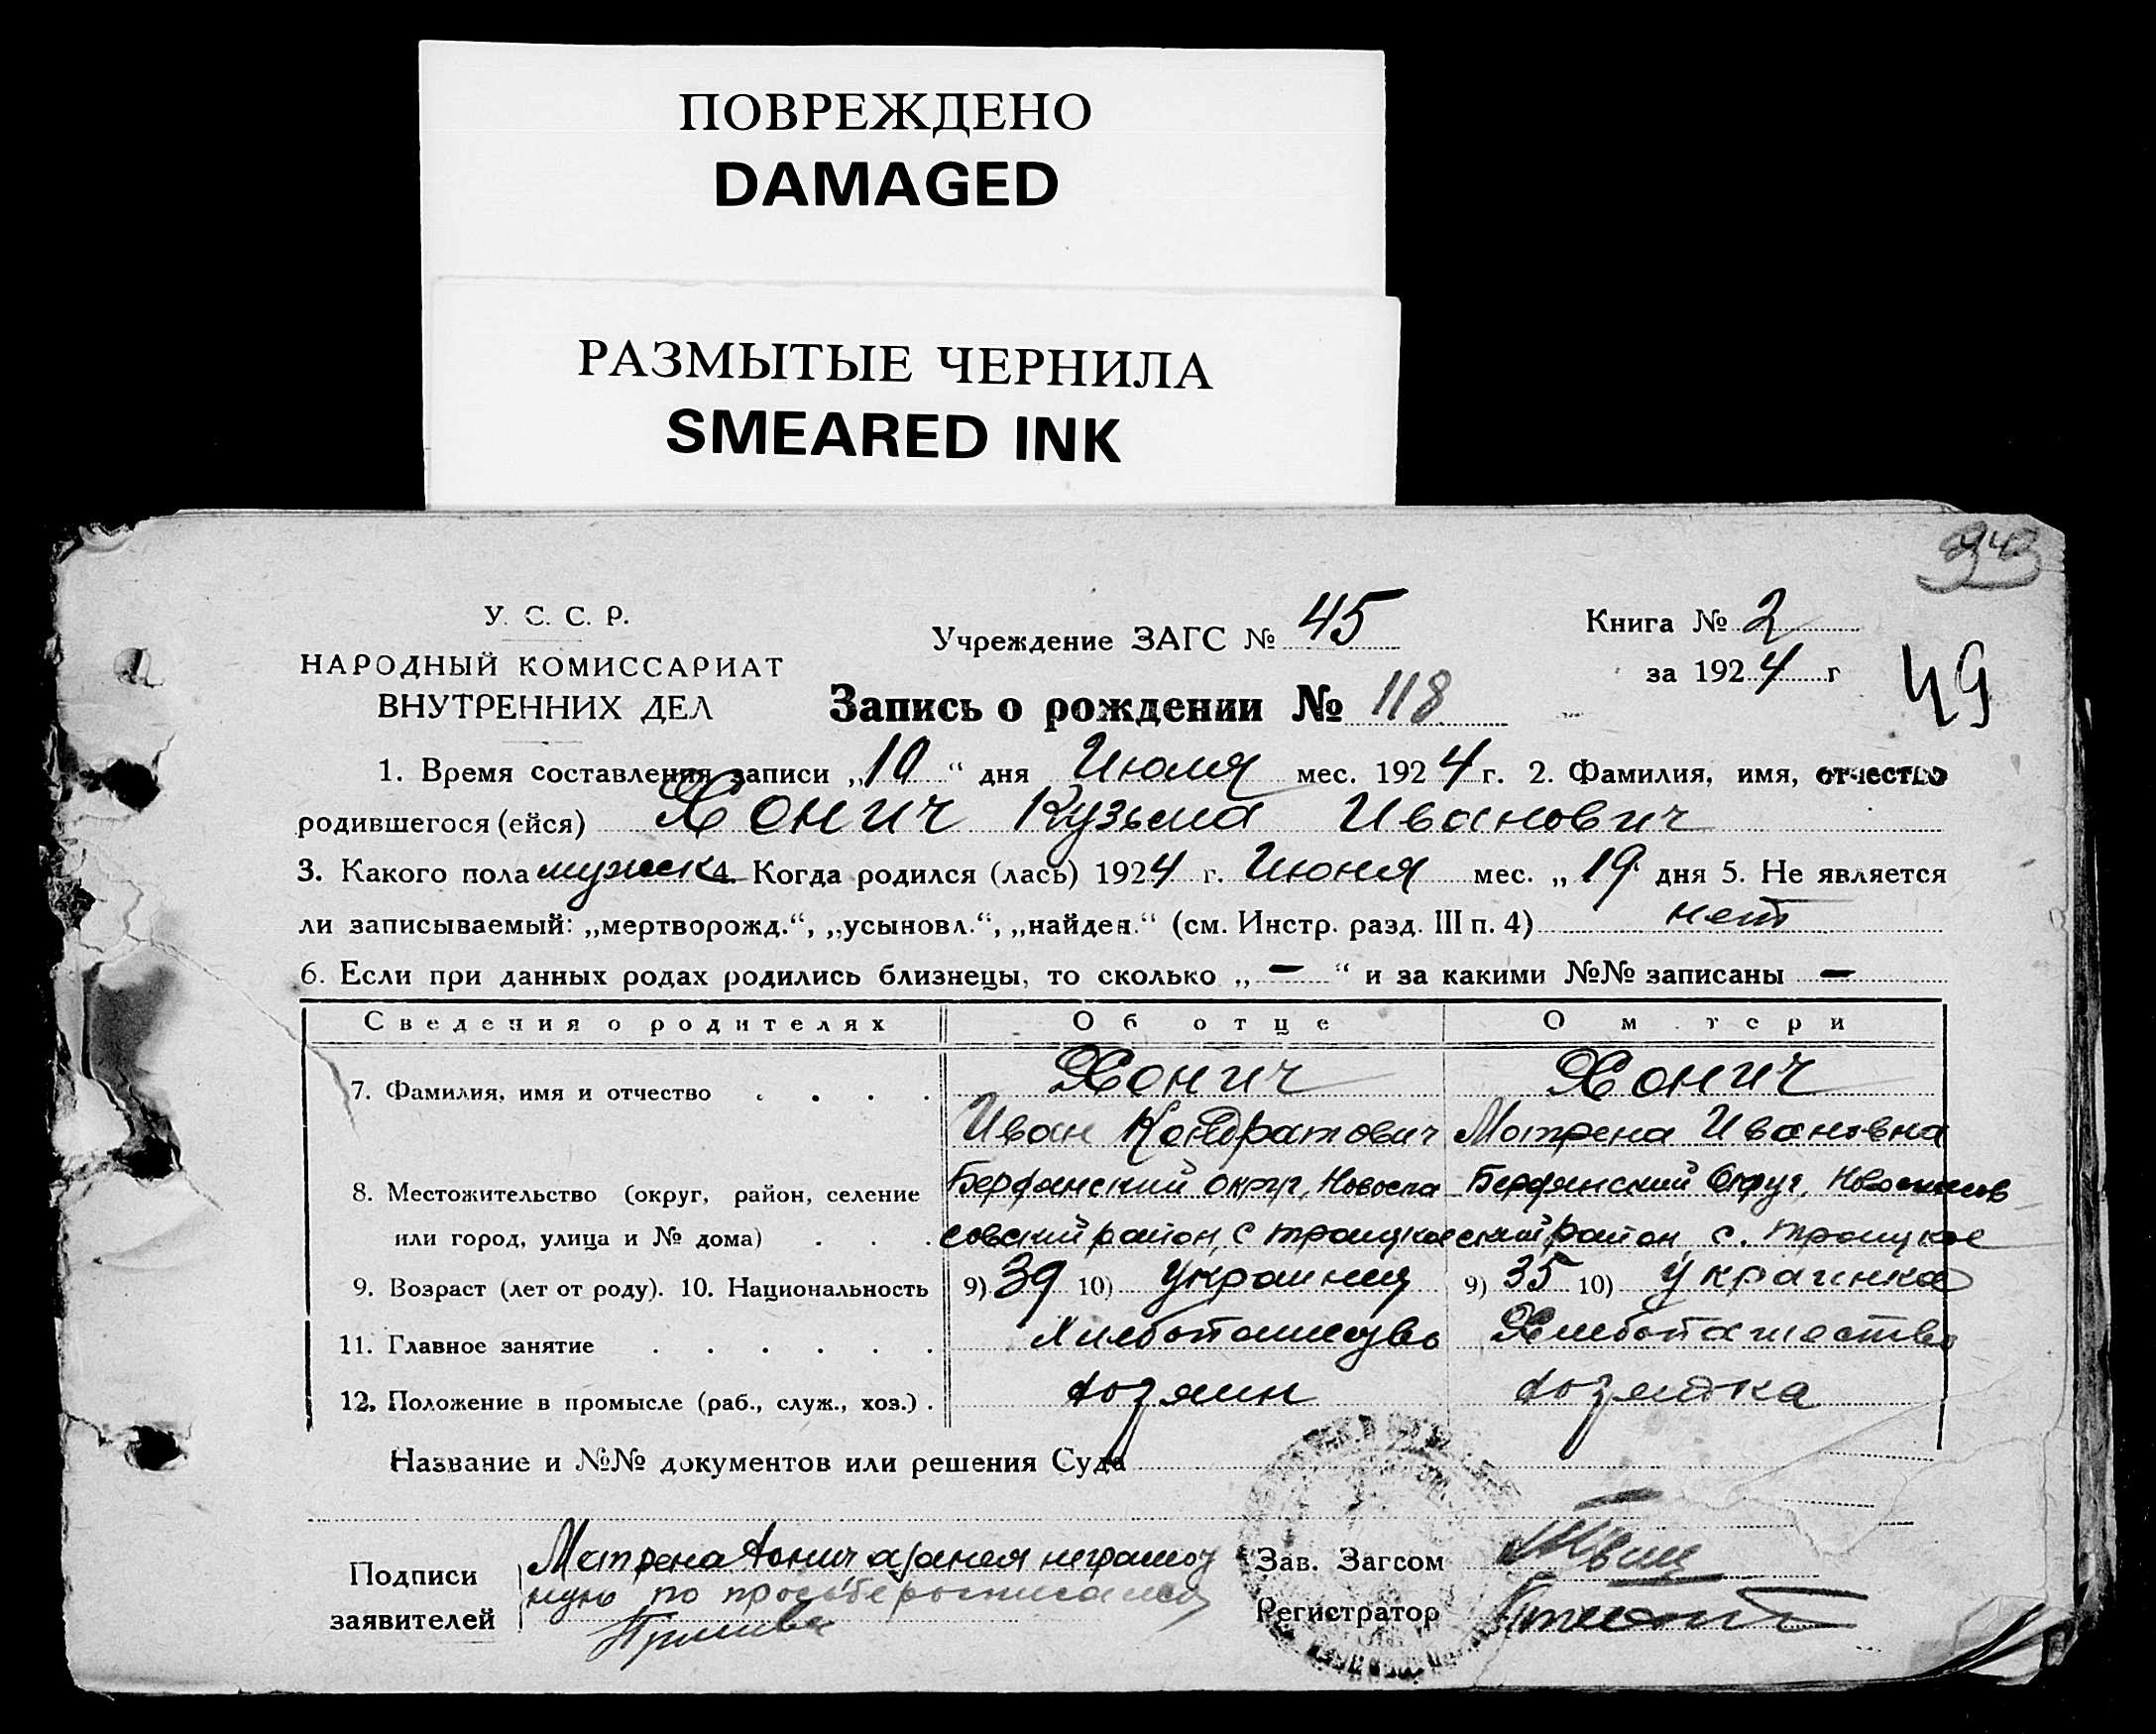 ПОВРЕЖДЕНО
DAMAGED
РАЗМЫТЫЕ ЧЕРНИЛА
SMEARED INK
У. С. С. Р.
НАРОДНЫЙ КОМИССАРИАТ
ВНУТРЕННИХ ДЕЛ
Учреждение ЗАГС № 45
Книга № 2
за 1924 г
49
Запись о рождении № 118
1. Время составления записи „10“ дня Июля мес. 1924 г. 2. Фамилия, имя, отчество
родившегося (ейся) Хонич Кузьма Иванович
3. Какого пола мужск 4. Когда родился (лась) 1924 г. Июня мес. „19 дня 5. Не является
ли записываемый: „мертворожд.“, „усыновл.“, „найден.“ (см. Инстр. разд. III п. 4) нет
6. Если при данных родах родились близнецы, то сколько „ — “ и за какими №№ записаны —
Сведения о родителях Об отце О м тери
7. Фамилия, имя и отчество Хонич Хонич
Иван Кондратович Матрена Ивановна
8. Местожительство (округ, район, селение Бердянский округ, Новоспа Бердянский Округ, Новоспасов
или город, улица и № дома) совский район, с Троицкое ский район с. Троицкое
9. Возраст (лет от роду). 10. Национальность 9) 39 10) Украинец 9) 35 10) Украинка
11. Главное занятие Хлебопашество Хлебопашество
12. Положение в промысле (раб., служ., хоз.) хозяин хозяйка
Название и №№ документов или решения Суда
Подписи заявителей
Матрена Хонич а за нея неграмот
ную по просьбе росписался
Зав. Загсом
Регистратор